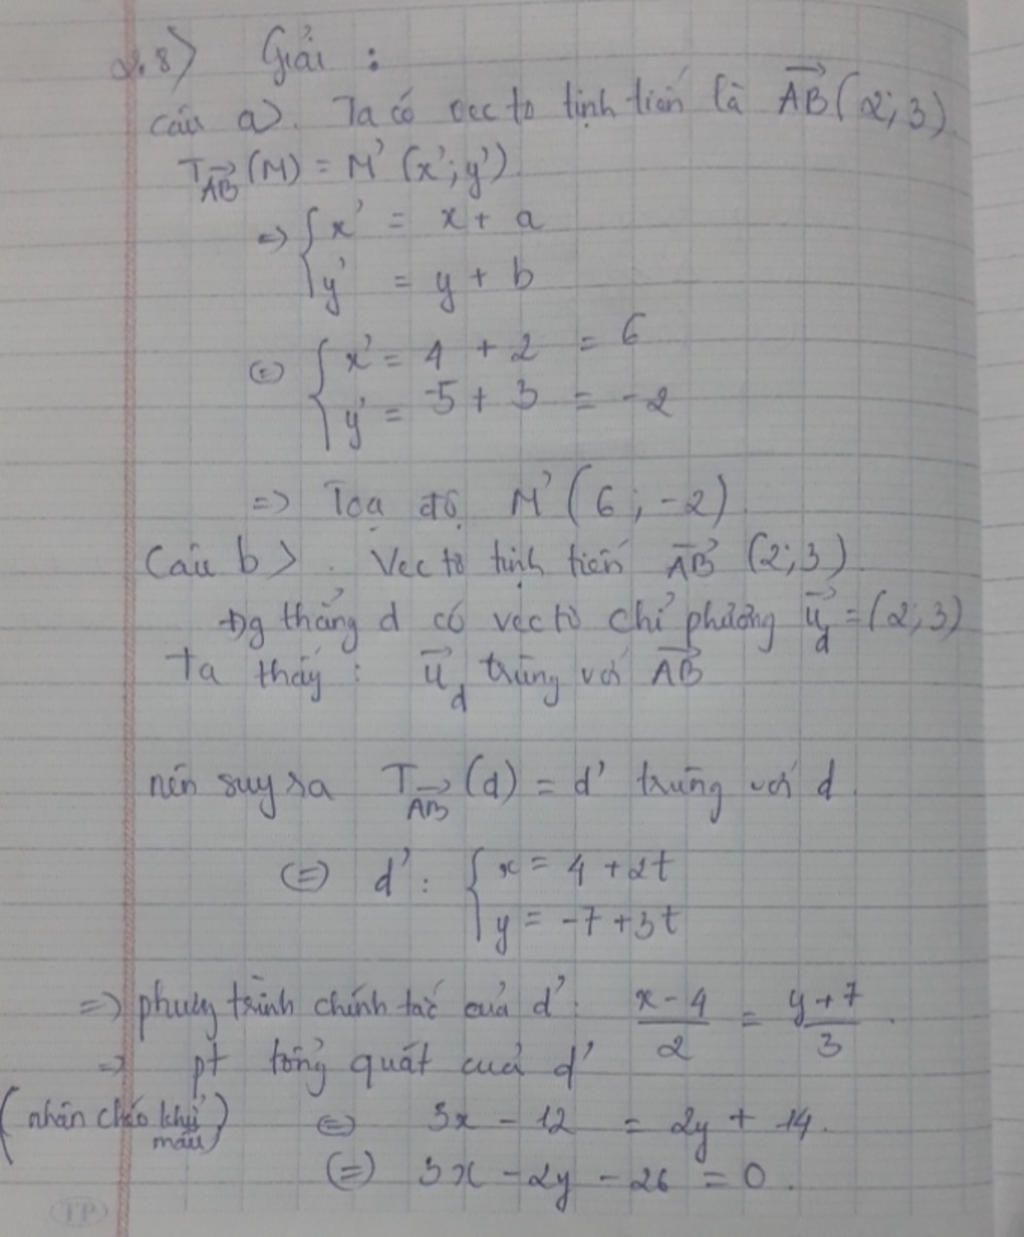 2.8) Giải :
câu a). Ta có vec tơ tịnh tiến là \overrightarrow{AB}(2; 3)
T_{\overrightarrow{AB}}(M) = M'(x'; y')
=> { x' = x + a
y' = y + b
<=> { x' = 4 + 2 = 6
y' = -5 + 3 = -2
=> Toạ độ M'(6; -2)
Câu b> . Vec tơ tịnh tiến \overrightarrow{AB} (2; 3)
Đg thẳng d có vectơ chỉ phương \vec{u}_d = (2; 3)
Ta thấy : \vec{u}_d trùng với \overrightarrow{AB}
nên suy ra T_{\overrightarrow{AB}}(d) = d' trùng với d.
<=> d' : { x = 4 + 2t
y = -7 + 3t
=> phương trình chính tắc của d' : \frac{x-4}{2} = \frac{y+7}{3} .
=> pt tổng quát của d'
(nhân chéo khử mẫu) <=> 3x - 12 = 2y + 14.
<=> 3x - 2y - 26 = 0.
TP